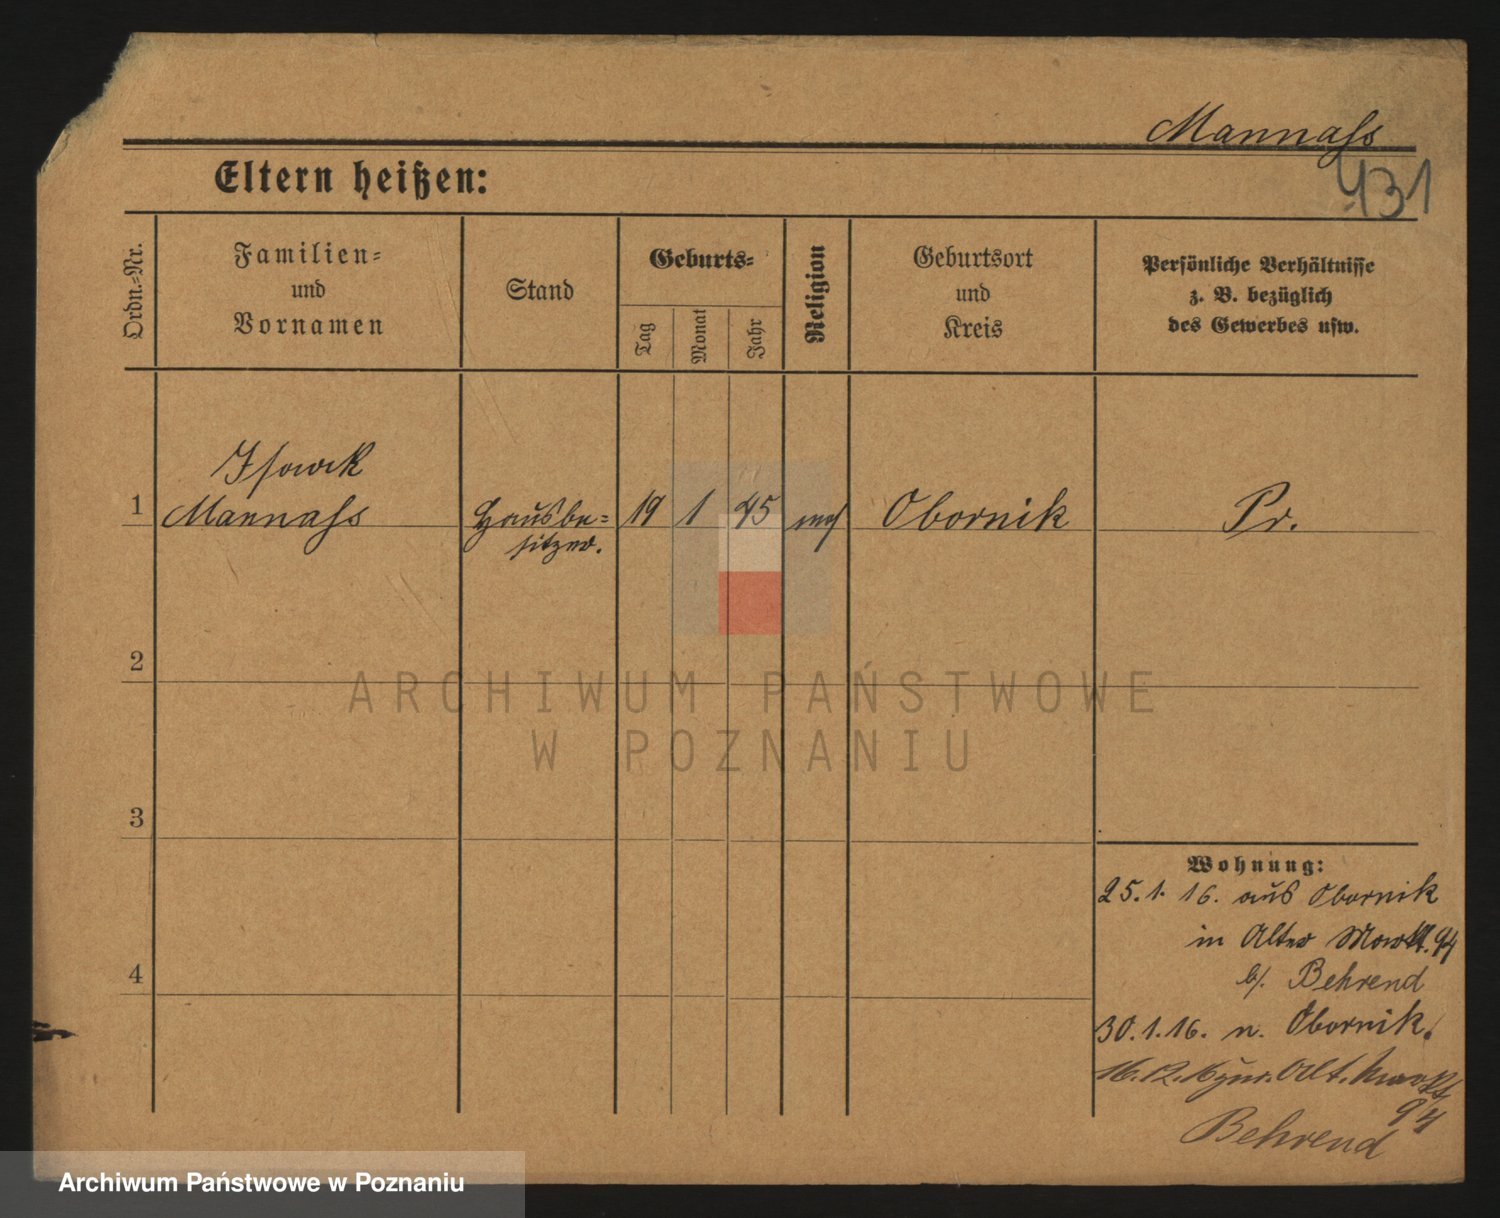 Mannass
431
Eltern heißen:
Ordn.-Nr.
Familien-
und
Vornamen
Stand
Geburts-
Tag
Monat
Jahr
Religion
Geburtsort
und
Kreis
Persönliche Verhältnisse
z. B. bezüglich
des Gewerbes usw.
Isaak
1 Mannass Hausbe= 19 1 45 mos Obornik Pr.
sitzer.
2
3
4
Wohnung:
25.1. 16. aus Obornik
in Alter Markt. 94
b/. Behrend
30.1.16. n. Obornik.
16.12.16 zur. Alt. Markt
94
Behrend
ARCHIWUM PAŃSTWOWE
W POZNANIU
Archiwum Państwowe w Poznaniu